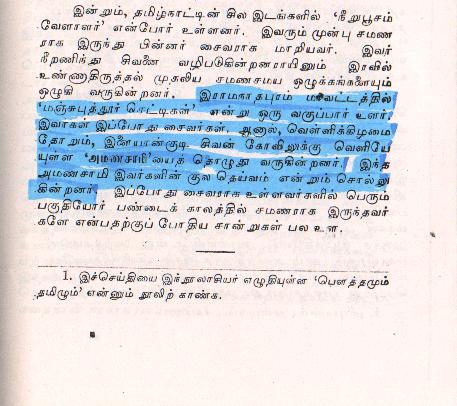 இன்றும், தமிழ்நாட்டின் சில இடங்களில் ‘நீறுபூசும்
வேளாளர்’ என்போர் உள்ளனர். இவரும் முன்பு சமண
ராக இருந்து பின்னர் சைவராக மாறியவர். இவர்
நீறணிந்து சிவனை வழிபடுகின்றனராயினும் இரவில்
உண்ணாதிருத்தல் முதலிய சமணசமய ஒழுக்கங்களையும்
ஒழுகி வருகின்றனர். இராமநாதபுரம் மாவட்டத்தில்
‘மஞ்சுபுத்தூர் செட்டிகள்’ என்று ஒரு வகுப்பார் உளர்.
இவர்கள் இப்போது சைவர்கள். ஆனால், வெள்ளிக்கிழமை
தோறும், இளையான்குடி சிவன் கோவிலுக்கு வெளியே
யுள்ள அமணசாமியைத் தொழுது வருகின்றனர். இந்த
அமணசாமி இவர்களின் குல தெய்வம் என்றும் சொல்லு
கின்றனர். இப்போது சைவராக உள்ளவர்களில் பெரும்
பகுதியோர் பண்டைக் காலத்தில் சமணராக இருந்தவர்
களே என்பதற்குப் போதிய சான்றுகள் பல உள.
1. இச்செய்தியை இந்நூலாசியர் எழுதியுள்ள ‘பௌத்தமும்
தமிழும்’ என்னும் நூலிற் காண்க.